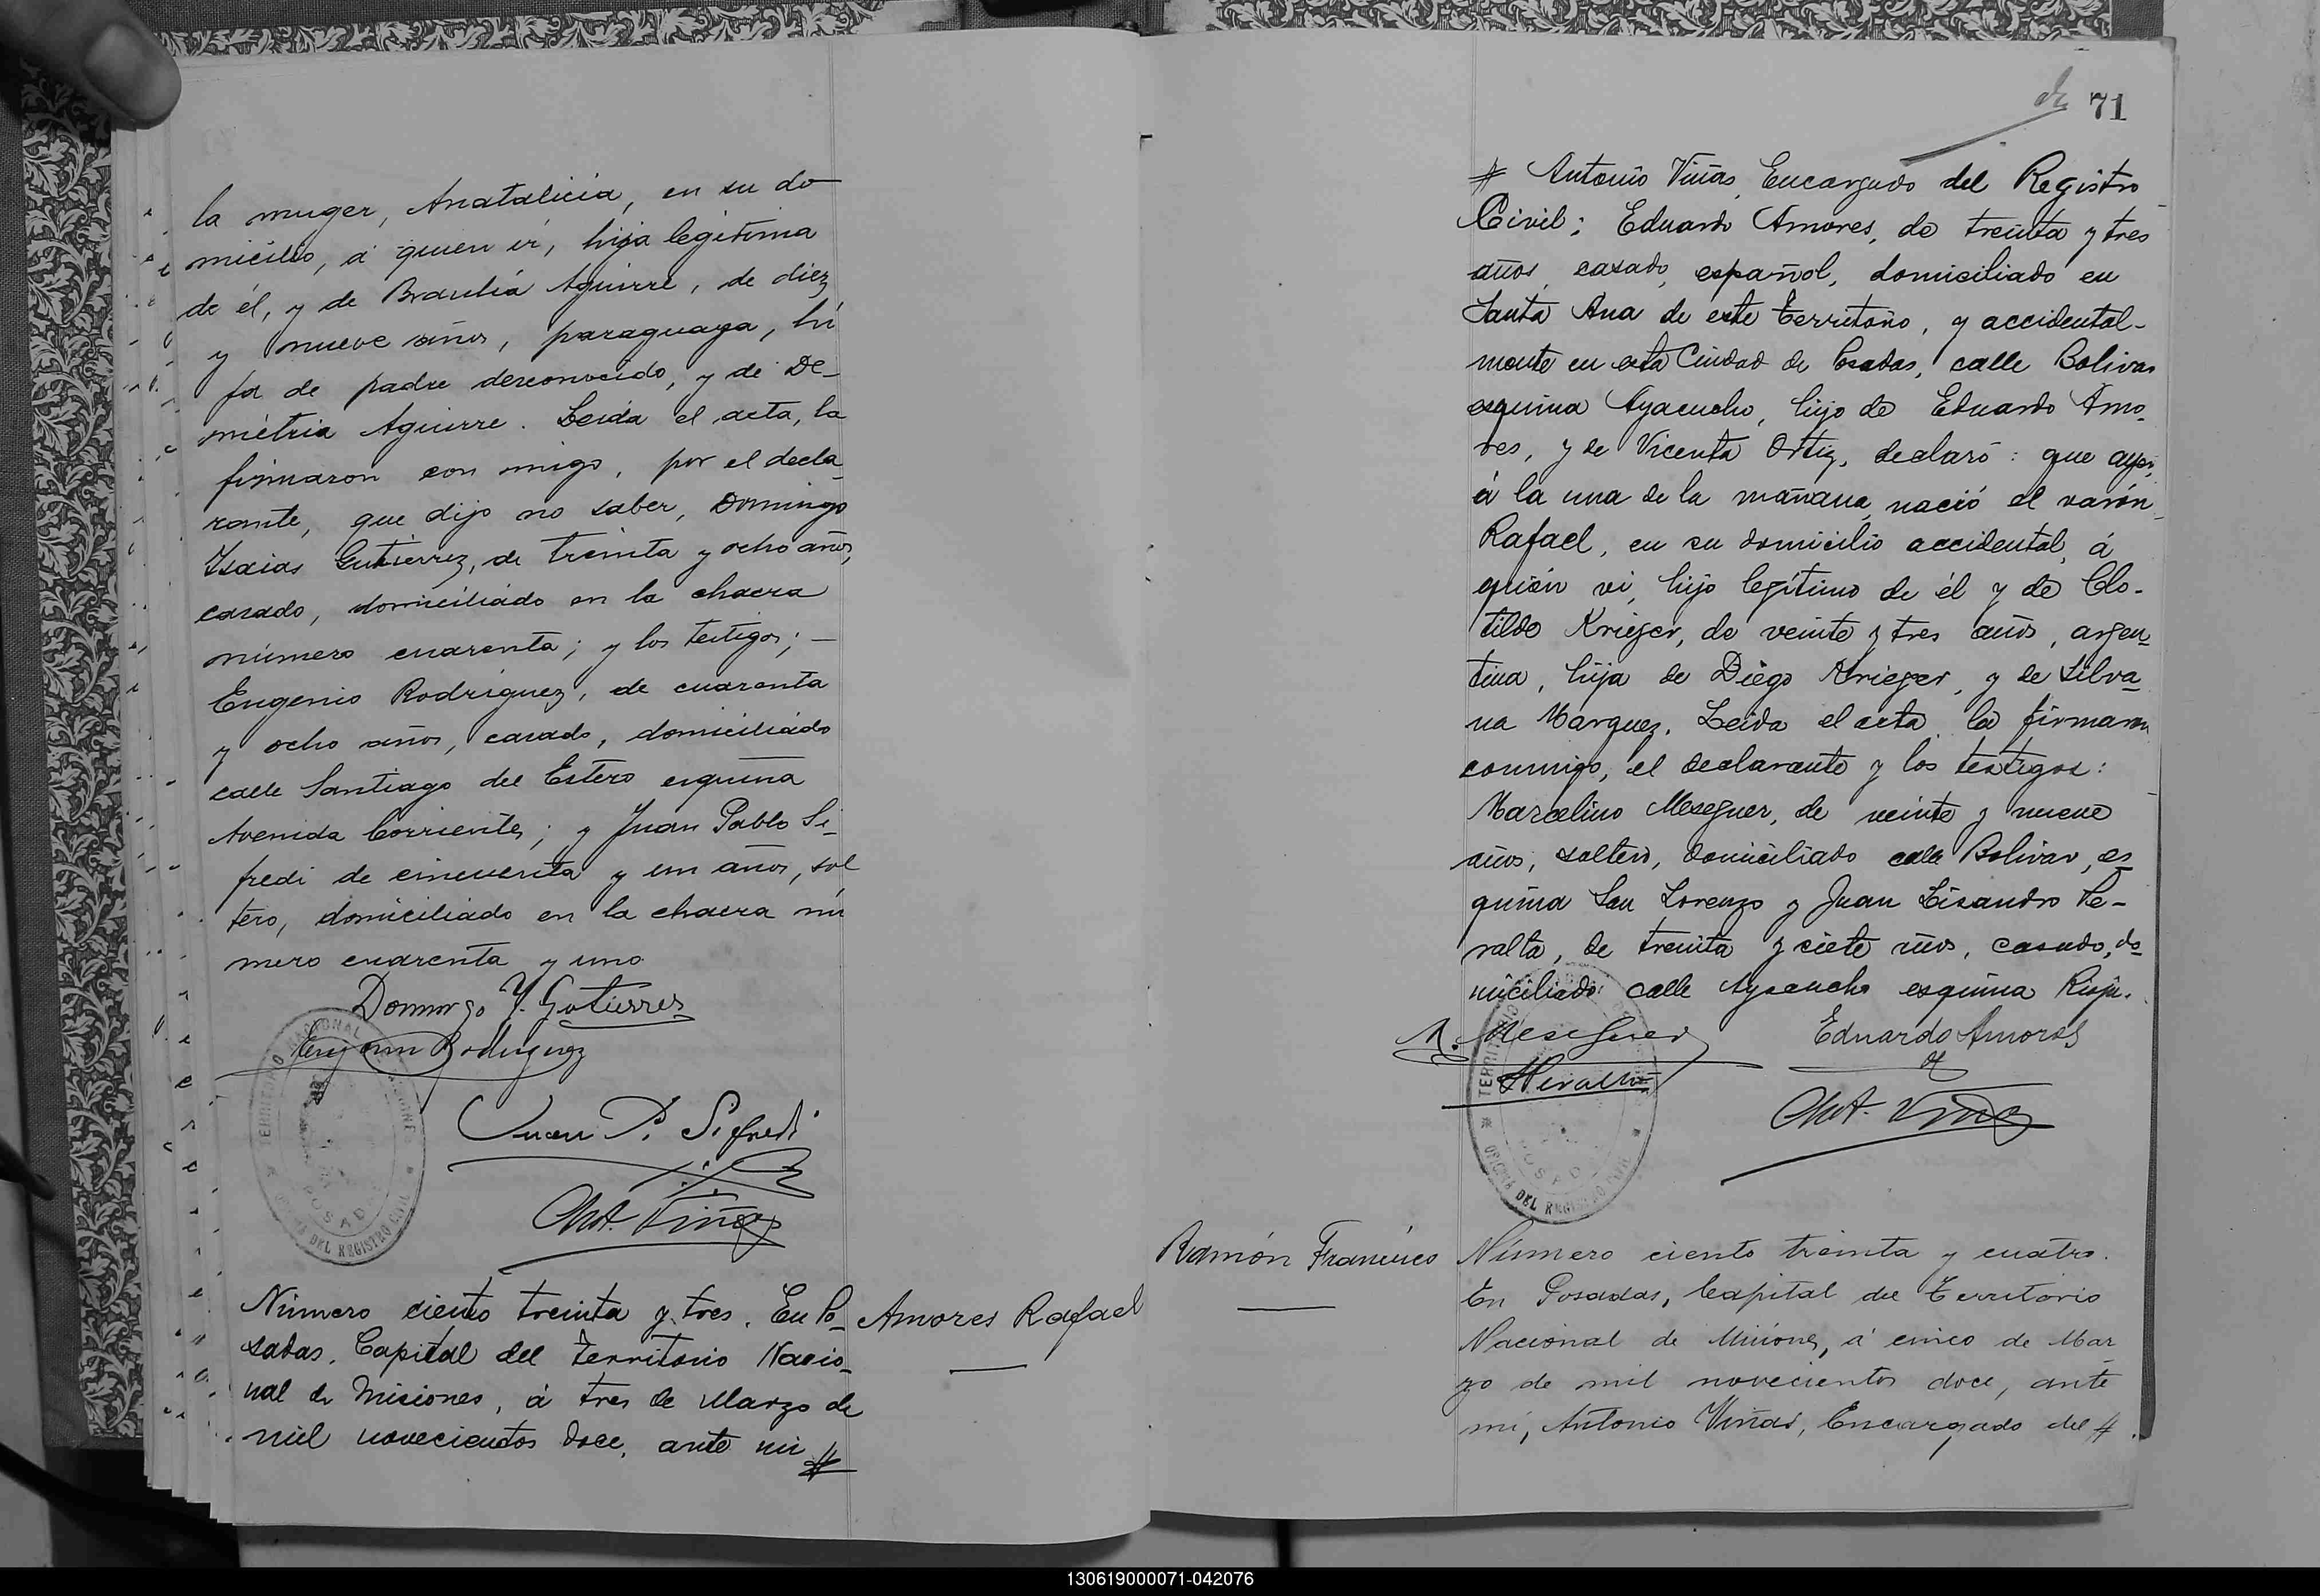 la muger, Anatalicia, en su do
micilio, á quien vi, hija legítima
de él, y de Braulia Aguirre, de diez
y nueve años, paraguaya, hi
ja de padre desconocido, y de De-
metria Aguirre. Leida el acta, la
firmaron con migo, por el decla
rante, que dijo no saber, Domingo
Isaias Gutierrez, de treinta y ocho años,
casado, domiciliado en la chacra
número cuarenta; y los testigos; —
Eugenio Rodriguez, de cuarenta
y ocho años, casado, domiciliado
calle Santiago del Estero esquina
Avenida Corrientes; y Juan Pablo Si-
fredi de cincuenta y un años, sol
tero, domiciliado en la chacra nú
mero cuarenta y uno
Domingo Y. Gutierres
Eugenio Rodriguez
Juan P. Sifredi
Ant. Viñas
TERRITORIO NACIONAL DE MISIONES
POSADAS
OFICINA DEL REGISTRO CIVIL
Amores Rafael
Número ciento treinta y tres. En Po-
sadas, Capital del Territorio Nacio-
nal de Misiones, á tres de Marzo de
mil novecientos doce, ante mi #
71
# Antonio Viñas, Encargado del Registro
Civil; Eduardo Amores, de treinta y tres
años, casado, español, domiciliado en
Santa Ana de este Territorio, y accidental-
mente en esta Ciudad de Posadas, calle Bolivar
esquina Ayacucho, hijo de Eduardo Amo-
res, y de Vicenta Ortiz, declaró: que ayer,
á la una de la mañana, nació el varón
Rafael, en su domicilio accidental, á
quién vi, hijo legítimo de él y de Clo-
tilde Krieger, de veinte y tres años, argen-
tina, hija de Diégo Krieger, y de Silva-
na Marquez. Leida el acta, la firmaron
conmigo, el declarante y los testigos:
Marcelino Meseguer, de veinte y nueve
años, soltero, domiciliado calle Bolivar, es-
quina San Lorenzo y Juan Lisandro Pe-
ralta, de treinta y siete años, casado, do-
miciliado: calle Ayacucho esquina Rioja.
M. Meseguer
Eduardo Amores
Peralta
Ant. Viñas
TERRITORIO
POSADAS
OFICINA DEL REGISTRO CIVIL
Ramón Francisco
Número ciento treinta y cuatro.
En Posadas, Capital del Territorio
Nacional de Misiones, á cinco de Mar
zo de mil novecientos doce, ante
mí, Antonio Viñas, Encargado del #
130619000071-042076